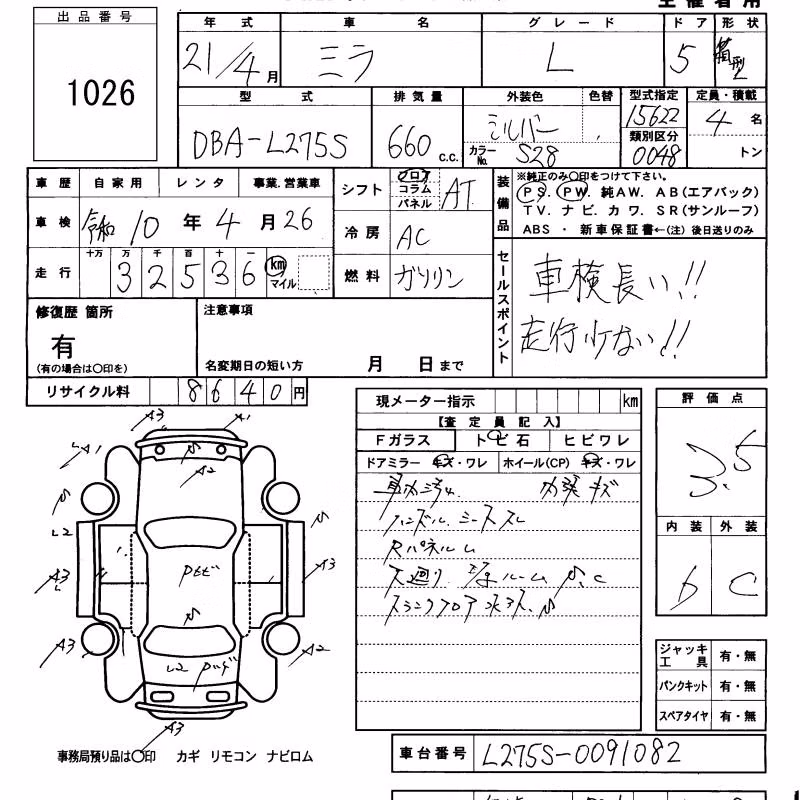 出品番号
1026
年式 車名 グレード ドア 形状
21/4月 ミラ L 5 箱型
型式 排気量 外装色 色替 型式指定 定員・積載
DBA-L275S 660 C.C. シルバー 15622 4名
カラーNo. S28 類別区分 0048 トン
車歴 自家用 レンタ 事業.営業車
車検 令和10年4月26
走行 十万 万 千 百 十 一
32536 km マイル
シフト フロア コラム パネル AT
冷房 AC
燃料 ガソリン
装備品
※純正のみ〇印をつけて下さい。
PS. PW. 純AW. AB(エアバック)
TV. ナビ. カワ. SR(サンルーフ)
ABS ・ 新車保証書←(注) 後日送りのみ
セールスポイント
車検長い!!
走行少ない!!
修復歴 箇所
有
(有の場合は〇印を)
注意事項
名変期日の短い方 月 日まで
リサイクル料 8640円
現メーター指示 km
【査定員記入】
Fガラス トビ石 ヒビワレ
ドアミラー キズ・ワレ ホイール(CP) キズ・ワレ
車内汚れ 内張キズ
ハンドル、シートスレ
Rパネルム
下廻り
トランクフロア
評価点
3.5
内装 外装
C
A3 A1
A2
L2
A3 A3
A3 A2
L2
A3
ジャッキ工具 有・無
パンクキット 有・無
スペアタイヤ 有・無
事務局預り品は〇印 カギ リモコン ナビロム
車台番号 L275S-0091082